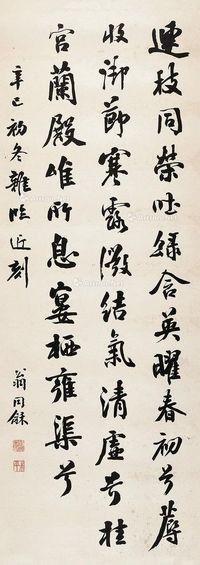 連枝同榮吐綠含英曜春初兮蓐
收御節寒露微結氣清虛兮桂
宮蘭殿唯所息宴栖雍渠兮
辛巳初冬雜臨近刻
翁同龢